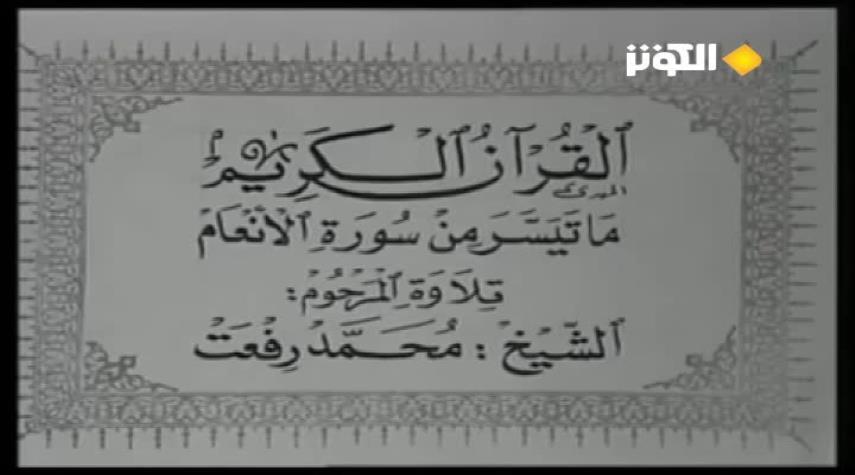 الكوثر
اَلْقُرْآنُ اَلْكَرِيْم
مَا تَيَسَّرَ مِنْ سُورَةِ الْأَنْعَام
تِلَاوَة الْمَرْحُوم:
الشَّيْخ : مُحَمَّد رِفْعَتْ